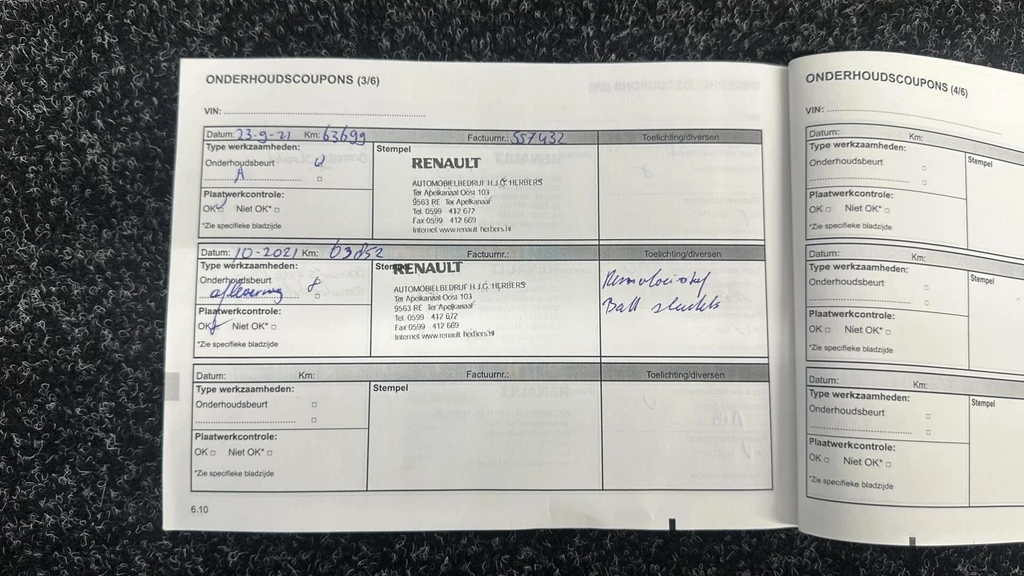 ONDERHOUDSCOUPONS (3/6)
VIN:
Datum: 23-9-21 Km: 63699 Factuurnr.: 557432 Toelichting/diversen
Type werkzaamheden:
Onderhoudsbeurt
A
Plaatwerkcontrole:
OK Niet OK*
*Zie specifieke bladzijde
Stempel
RENAULT
AUTOMOBIELBEDRIJF H.J.G. HERBERS
Ter Apelkanaal Oost 103
9563 RE Ter Apelkanaal
Tel. 0599 - 412 672
Fax 0599 - 412 669
Internet www.renault-herbers.nl
Datum: 10-2021 Km: Factuurnr.: Toelichting/diversen
Type werkzaamheden:
Onderhoudsbeurt
aflevering
Plaatwerkcontrole:
OK Niet OK*
*Zie specifieke bladzijde
Stempel
RENAULT
AUTOMOBIELBEDRIJF H.J.G. HERBERS
Ter Apelkanaal Oost 103
9563 RE Ter Apelkanaal
Tel. 0599 - 412 672
Fax 0599 - 412 669
Internet www.renault-herbers.nl
Remvloeistof
Datum: Km: Factuurnr.: Toelichting/diversen
Type werkzaamheden:
Onderhoudsbeurt
Plaatwerkcontrole:
OK Niet OK*
*Zie specifieke bladzijde
Stempel
6.10
ONDERHOUDSCOUPONS (4/6)
VIN:
Datum: Km:
Type werkzaamheden:
Onderhoudsbeurt
Plaatwerkcontrole:
OK Niet OK*
*Zie specifieke bladzijde
Stempel
Datum: Km:
Type werkzaamheden:
Onderhoudsbeurt
Plaatwerkcontrole:
OK Niet OK*
*Zie specifieke bladzijde
Stempel
Datum: Km:
Type werkzaamheden:
Onderhoudsbeurt
Plaatwerkcontrole:
OK Niet OK*
*Zie specifieke bladzijde
Stempel